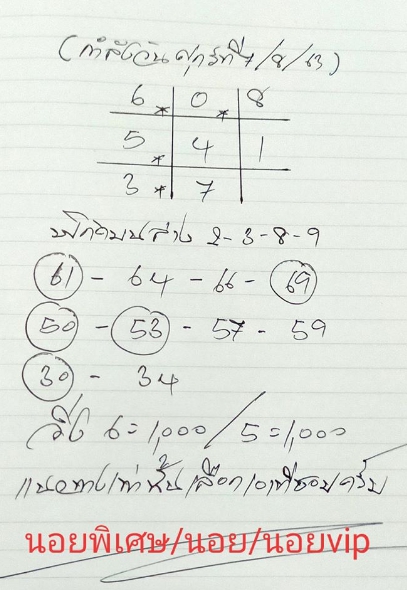 (กำลังวันศุกร์ที่ 7/8/63)
6 * 0 * 8
5 * 4 1
3 * 7
บน ล่าง 2-3-8-9
61 - 64 - 66 - 69
50 - 53 - 57 - 59
30 - 34
วิ่ง 6=1,000 / 5=1,000
แนวทางเท่านั้นเลือกเอาที่ชอบครับ
นอยพิเศษ/นอย/นอยvip